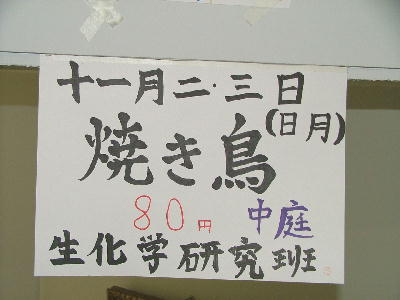 十一月二・三日
(日月)
焼き鳥
80円 中庭
生化学研究班